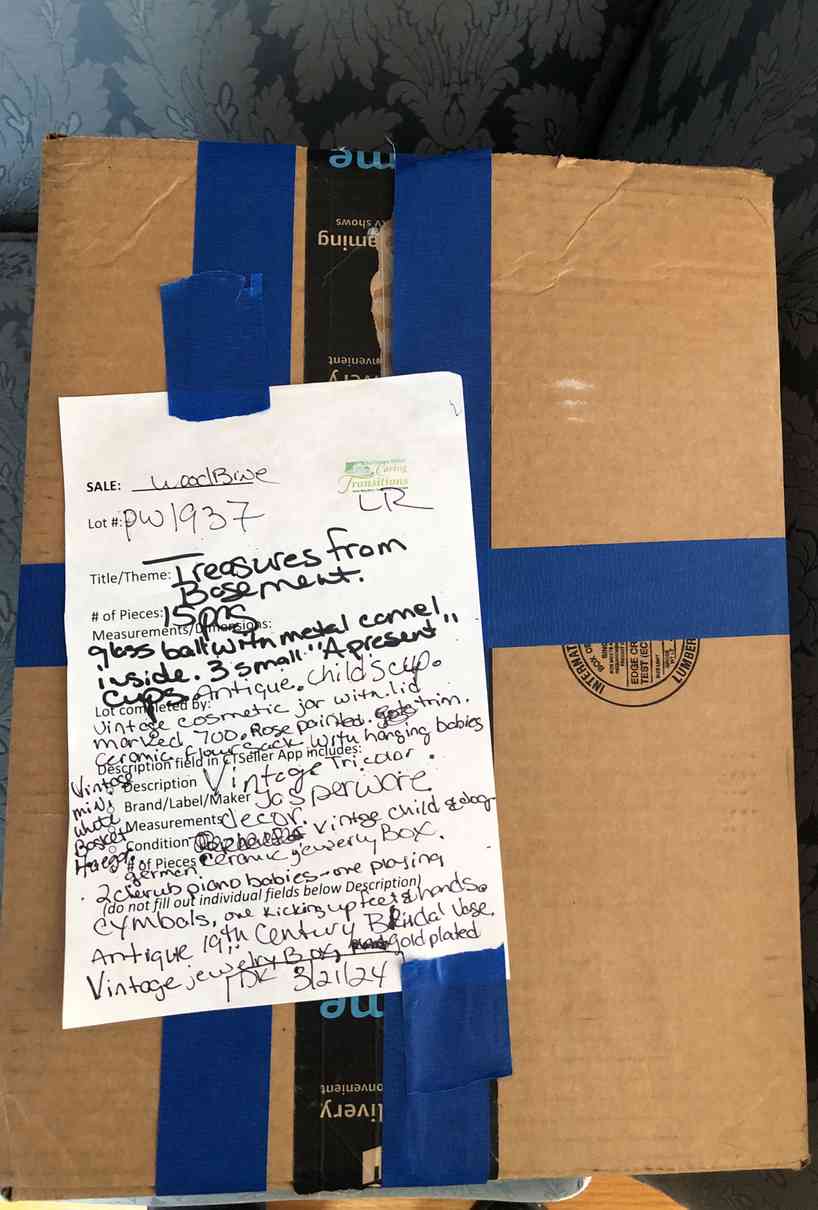 me
tv shows
aming
onvenient
very
SALE: WoodBine
Caring
Transitions
LR
Lot #: PW1937
Title/Theme: Treasures from
Basement.
# of Pieces: 15pcs
Measurements/Dimensions:
glass ball with metal camel
inside. 3 small "A present"
cups. Antique. child's cup.
Lot completed by:
Vintage cosmetic jar with lid
marked 700. Rose painted. trim.
ceramic flour sack with hanging babies
Description field in CTSeller App includes:
Vintage Tricolor.
Description
Brand/Label/Maker Jasperware
Measurements decor.
Vintage
mini
white
Basket
Haeger.
Condition Vintge child & dog
# of Pieces ceramic jewerly Box.
germen.
2 cherub piano babies - one playing
(do not fill out individual fields below Description)
cymbals, one kicking up feet & hands.
Antique 19th Century Bridal Vase.
Vintage jewelry Box, gold plated
PDK 3/21/24
INTERNATI
BOX
EDGE CR
TEST (EC
LUMBER
me
onvenient
livery